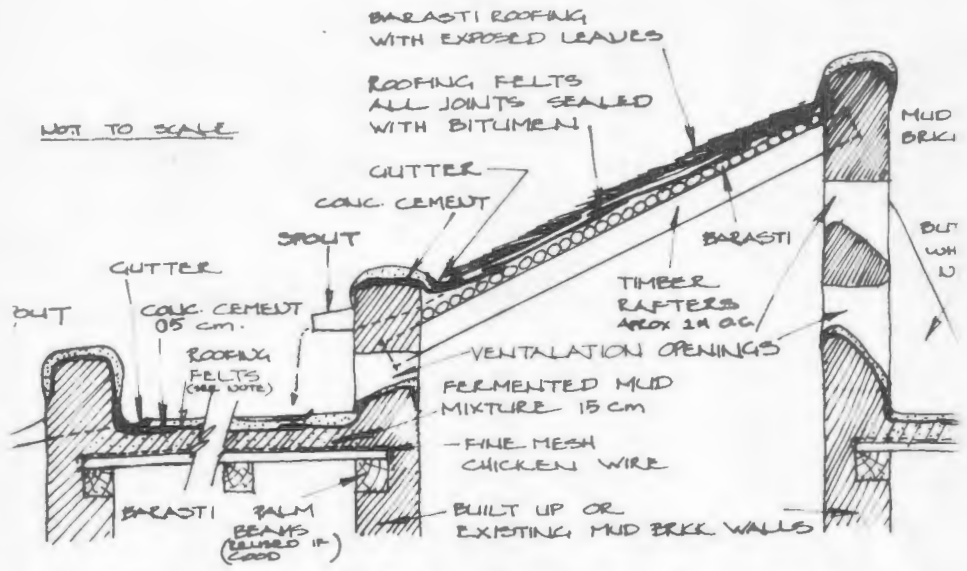 BARASTI ROOFING
WITH EXPOSED LEAVES
ROOFING FELTS
ALL JOINTS SEALED
WITH BITUMEN
NOT TO SCALE
MUD
GUTTER
CONC. CEMENT
SPOUT
BARASTI
GUTTER
TIMBER
RAFTERS
APROX 2M O.C.
CONC. CEMENT
05 cm.
ROOFING
FELTS
(SEE NOTE)
VENTALATION OPENINGS
FERMENTED MUD
MIXTURE 15 cm
FINE MESH
CHICKEN WIRE
BARASTI
PALM
BEAMS
IF
GOOD
BUILT UP OR
EXISTING MUD BRICK WALLS